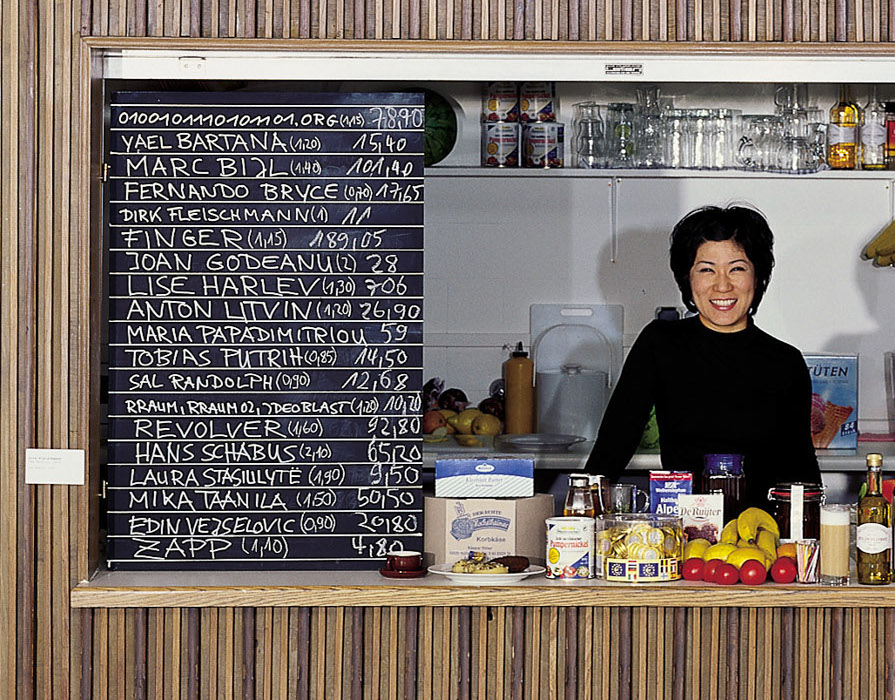 010010111010101101.ORG (1,15) 78,90
YAEL BARTANA (1,20) 15,40
MARC BIJL (1,40) 101,40
FERNANDO BRYCE (0,70) 17,65
DIRK FLEISCHMANN (1) 11
FINGER (1,15) 189,05
JOAN GODEANU (2) 28
LISE HARLEV (1,30) 706
ANTON LITVIN (1,20) 26,90
MARIA PAPADIMITRIOU 59
TOBIAS PUTRIH (0,85) 14,50
SAL RANDOLPH (0,90) 12,68
RRAUM, RRAUM02, IDEOBLAST (1,20) 10,20
REVOLVER (1,60) 92,80
HANS SCHABUS (2,10) 65,20
LAURA STASIULYTĖ (1,90) 9,50
MIKA TAANILA (1,50) 50,50
EDIN VEJSELOVIC (0,90) 20,80
ZAPP (1,10) 4,80
TÜTEN
84
DER ECHTE
Kochathaimer
Korbkäse
Pumpernickel
Alpe
De Ruijter